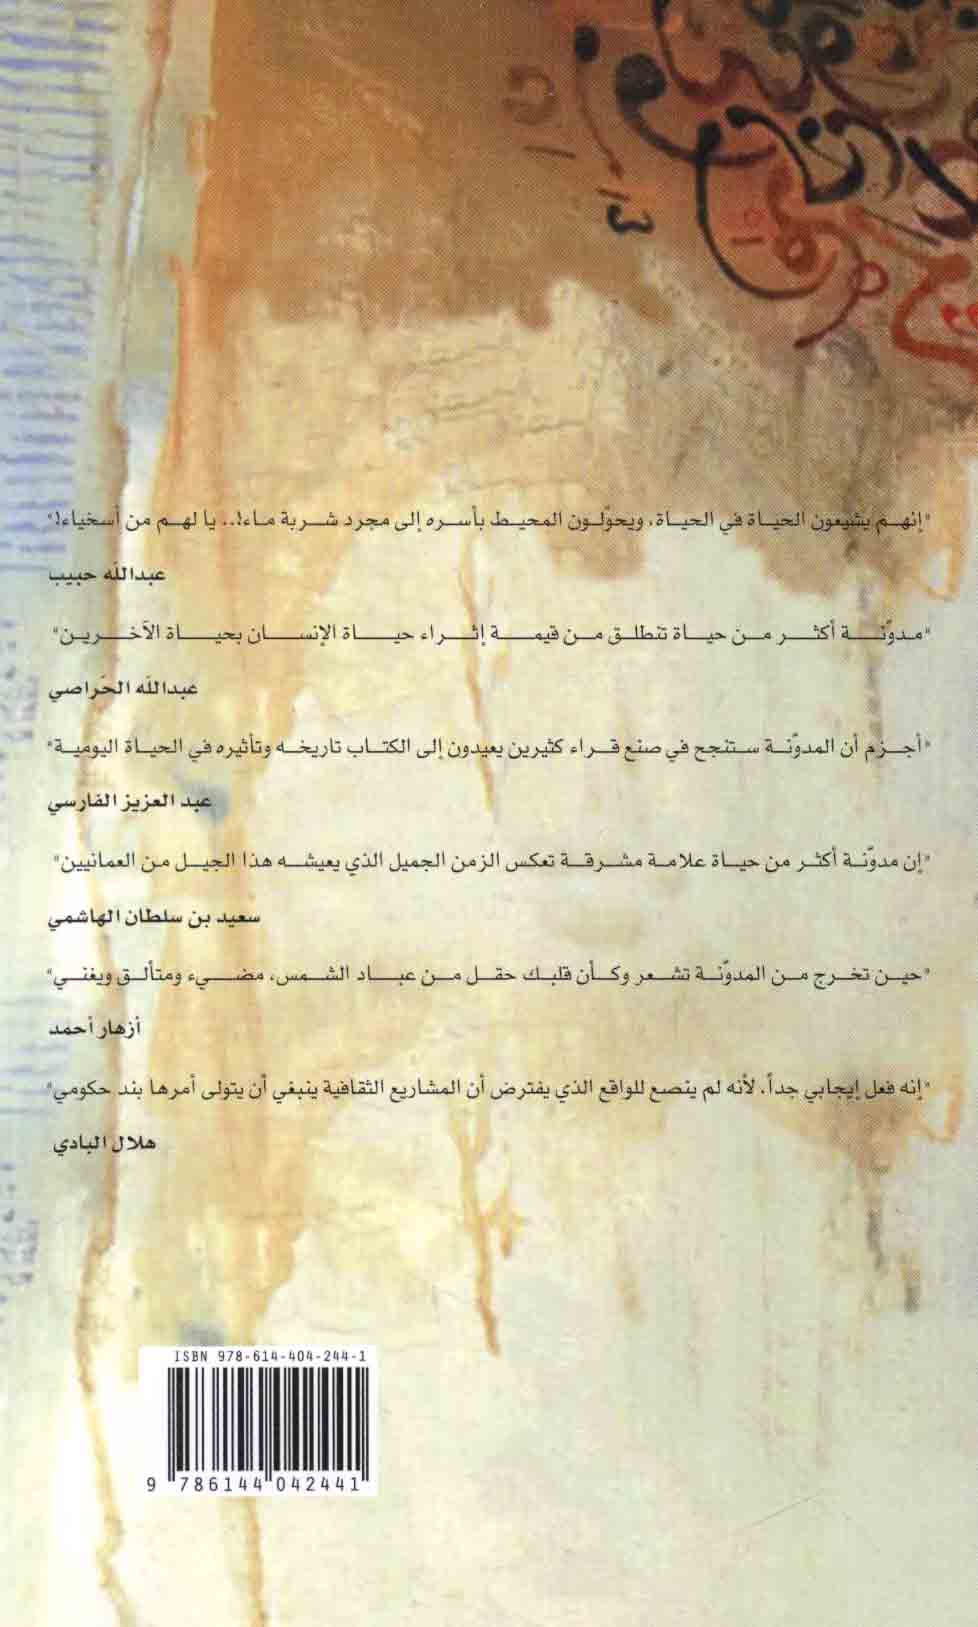 "إنهم يشيعون الحياة في الحياة، ويحوّلون المحيط بأسره إلى مجرد شربة ماء!.. يا لهم من أسخياء!"
عبدالله حبيب
"مدوّنة أكثر من حياة تنطلق من قيمة إثراء حياة الإنسان بحياة الآخرين"
عبدالله الحَراصي
"أجزم أن المدوّنة ستنجح في صنع قراء كثيرين يعيدون إلى الكتاب تاريخه وتأثيره في الحياة اليومية"
عبد العزيز الفارسي
"إن مدوّنة أكثر من حياة علامة مشرقة تعكس الزمن الجميل الذي يعيشه هذا الجيل من العمانيين"
سعيد بن سلطان الهاشمي
"حين تخرج من المدوّنة تشعر وكأن قلبك حقل من عباد الشمس، مضيء ومتألق ويغني"
أزهار أحمد
"إنه فعل إيجابي جداً، لأنه لم ينصع للواقع الذي يفترض أن المشاريع الثقافية ينبغي أن يتولى أمرها بند حكومي"
هلال البادي
ISBN 978-614-404-244-1
9 786144 042441